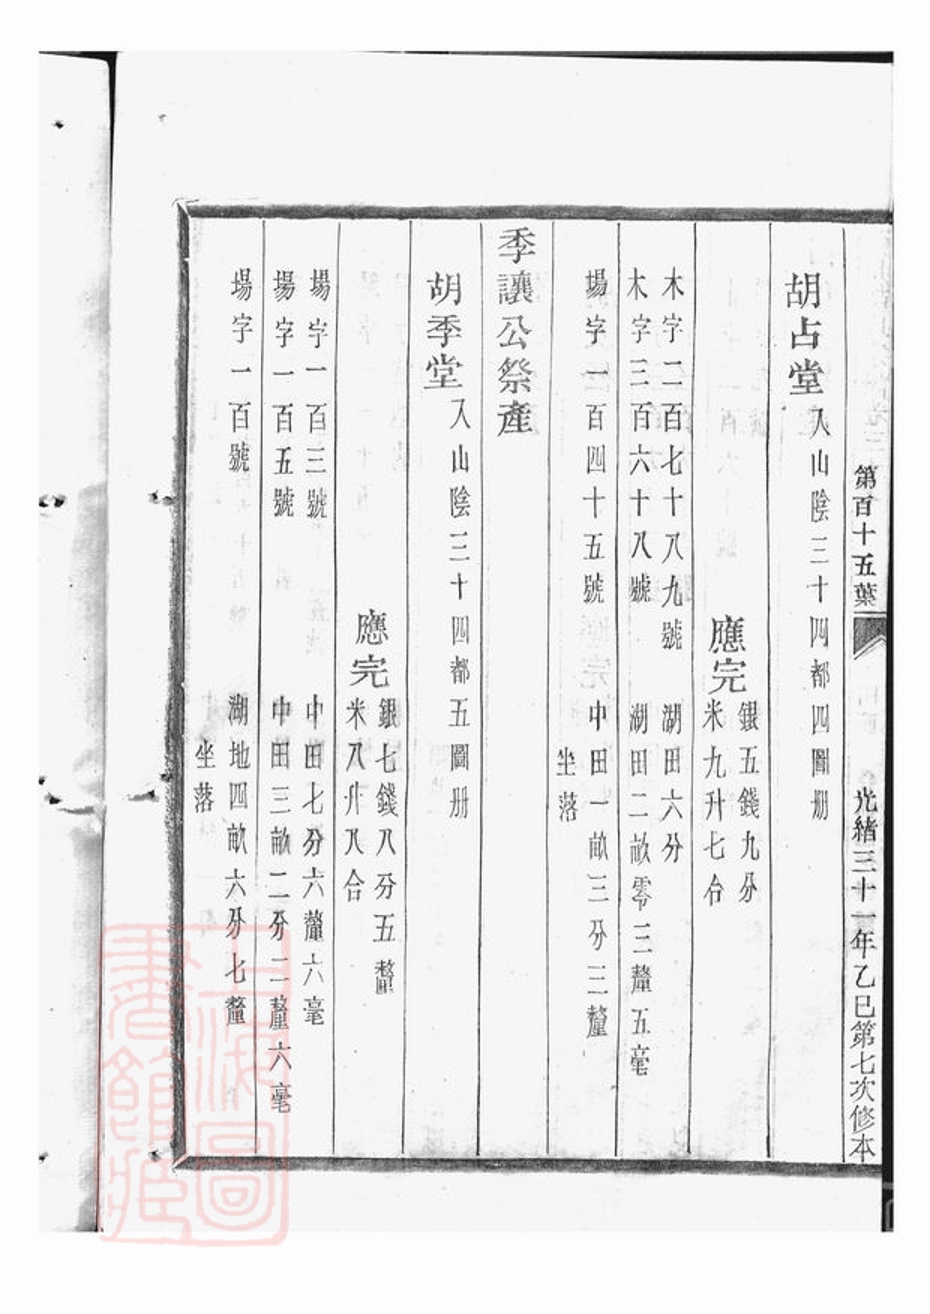 第百十五葉 光緒三十一年乙巳第七次修本
胡占堂 入山陰三十四都四圖册
應完 銀五錢九分
米九升七合
木字二百七十八九號 湖田六分
木字三百六十八號 湖田二畝零三釐五毫
場字一百四十五號 中田一畝三分三釐
坐落
季讓公祭產
胡季堂 入山陰三十四都五圖册
應完 銀七錢八分五釐
米八升八合
場字一百三號 中田七分六釐六毫
場字一百五號 中田三畝二分二釐六毫
場字一百號 湖地四畝六分七釐
坐落
上海圖書館藏